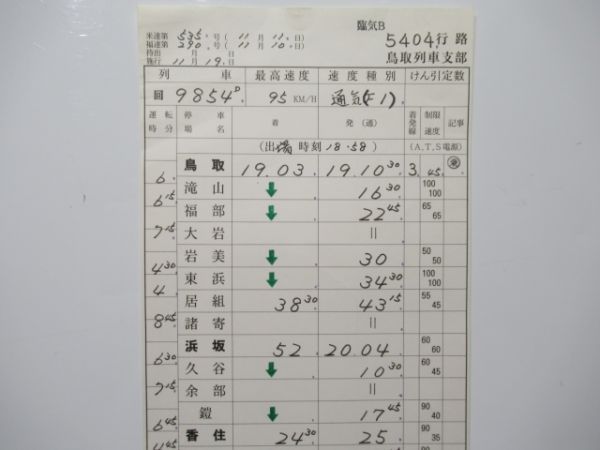 臨気B
米達第 535 号 ( 11 月 11 日 )
福達第 290 号 ( 11 月 10 日 )
5404 行 路
月 日
施行 11 月 19 日
鳥取列車支部
列 車 最高速度 速度種別 けん引定数
回 9854D 95 KM/H 通気(F1)
運転時分 停車場名 着 発(通) 着発線 制限速度 記事
(出場時刻 18.58) (A.T.S電源)
鳥取 19.03 19.10 30 3 45
6
滝山 ↓ 16 30 100 100
6 15
福部 ↓ 22 45 65 65
7 15
大岩 ||
岩美 ↓ 30 50 50
4 30
東浜 ↓ 34 30 100 100
4
居組 38 30 43 15 55 45
諸寄 ||
8 45
浜坂 52 20.04 60 60
6 30
久谷 ↓ 10 30 60 45
7 15
余部 ||
鎧 ↓ 17 45 90 40
6 45
香住 24 30 25 90 35